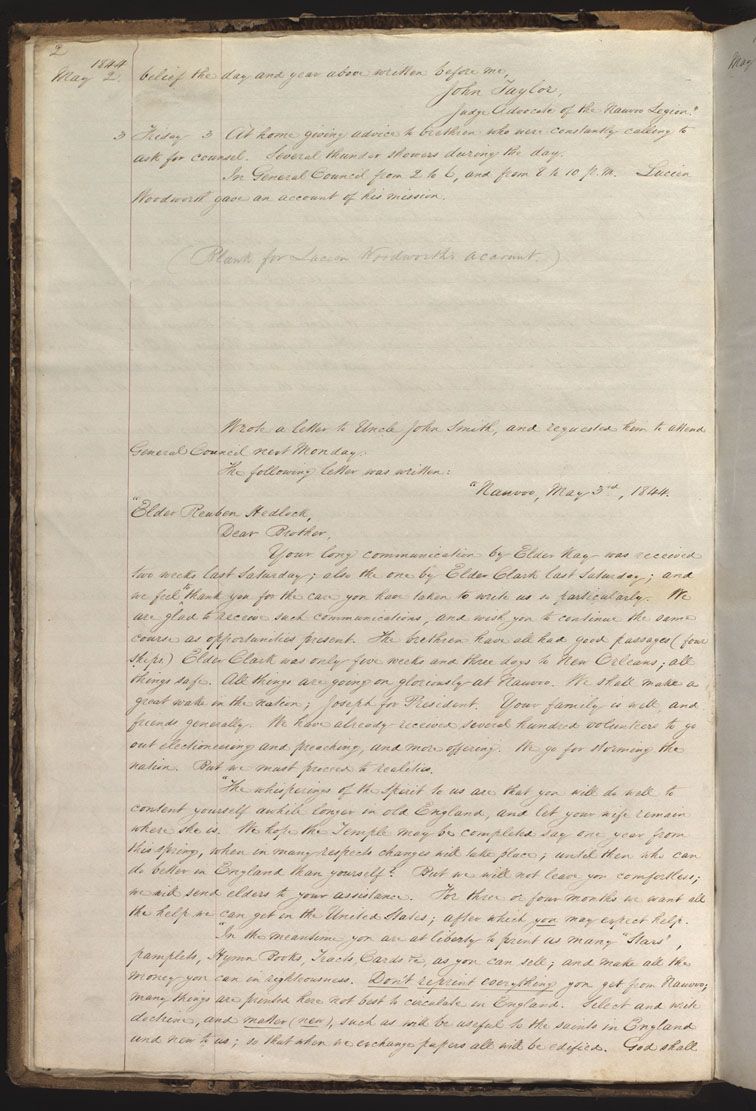 2
1844
May 2. belief the day and year above written before me,
John Taylor,
Judge Advocate of the Nauvoo Legion."
3 Friday 3 At home giving advice to brethren who were constantly calling to
ask for counsel. Several thunder showers during the day.
In General Council from 2 to 6, and from 8 to 10 p.m. Lucien
Woodworth gave an account of his mission.
(Blank for Lucien Woodworth's account.)
Wrote a letter to Uncle John Smith, and requested him to attend
General Council next Monday.
The following letter was written:
"Nauvoo, May 3rd, 1844.
"Elder Reuben Hedlock,
Dear Brother,
Your long communication by Elder Kay was received
two weeks last Saturday; also the one by Elder Clark last Saturday; and
we feel to thank you for the care you have taken to write us so particularly. We
are glad to receive such communications, and wish you to continue the same
course as opportunities present. The brethren have all had good passages (four
ships) Elder Clark was only five weeks and three days to New Orleans; all
things safe. All things are going on gloriously at Nauvoo. We shall make a
great wake in the nation; Joseph for President. Your family is well and
friends generally. We have already received several hundred volunteers to go
out electioneering and preaching, and more offering. We go for storming the
nation. But we must proceed to realities.
"The whisperings of the Spirit to us are that you will do well to
content yourself awhile longer in old England, and let your wife remain
where she is. We hope the Temple may be completed say one year from
this spring, when in many respects changes will take place; until then who can
do better in England than yourself? But we will not leave you comfortless;
we will send elders to your assistance. For three or four months we want all
the help we can get in the United States; after which you may expect help.
"In the meantime you are at liberty to print as many "Stars",
pamplets, Hymn Books, Tracts, Cards &c, as you can sell; and make all the
money you can in righteousness. Don't reprint everything you get from Nauvoo;
many things are printed here not best to circulate in England. Select and write
doctrine, and matter (new), such as will be useful to the saints in England
and new to us; so that when we exchange papers all will be edified. God shall
May